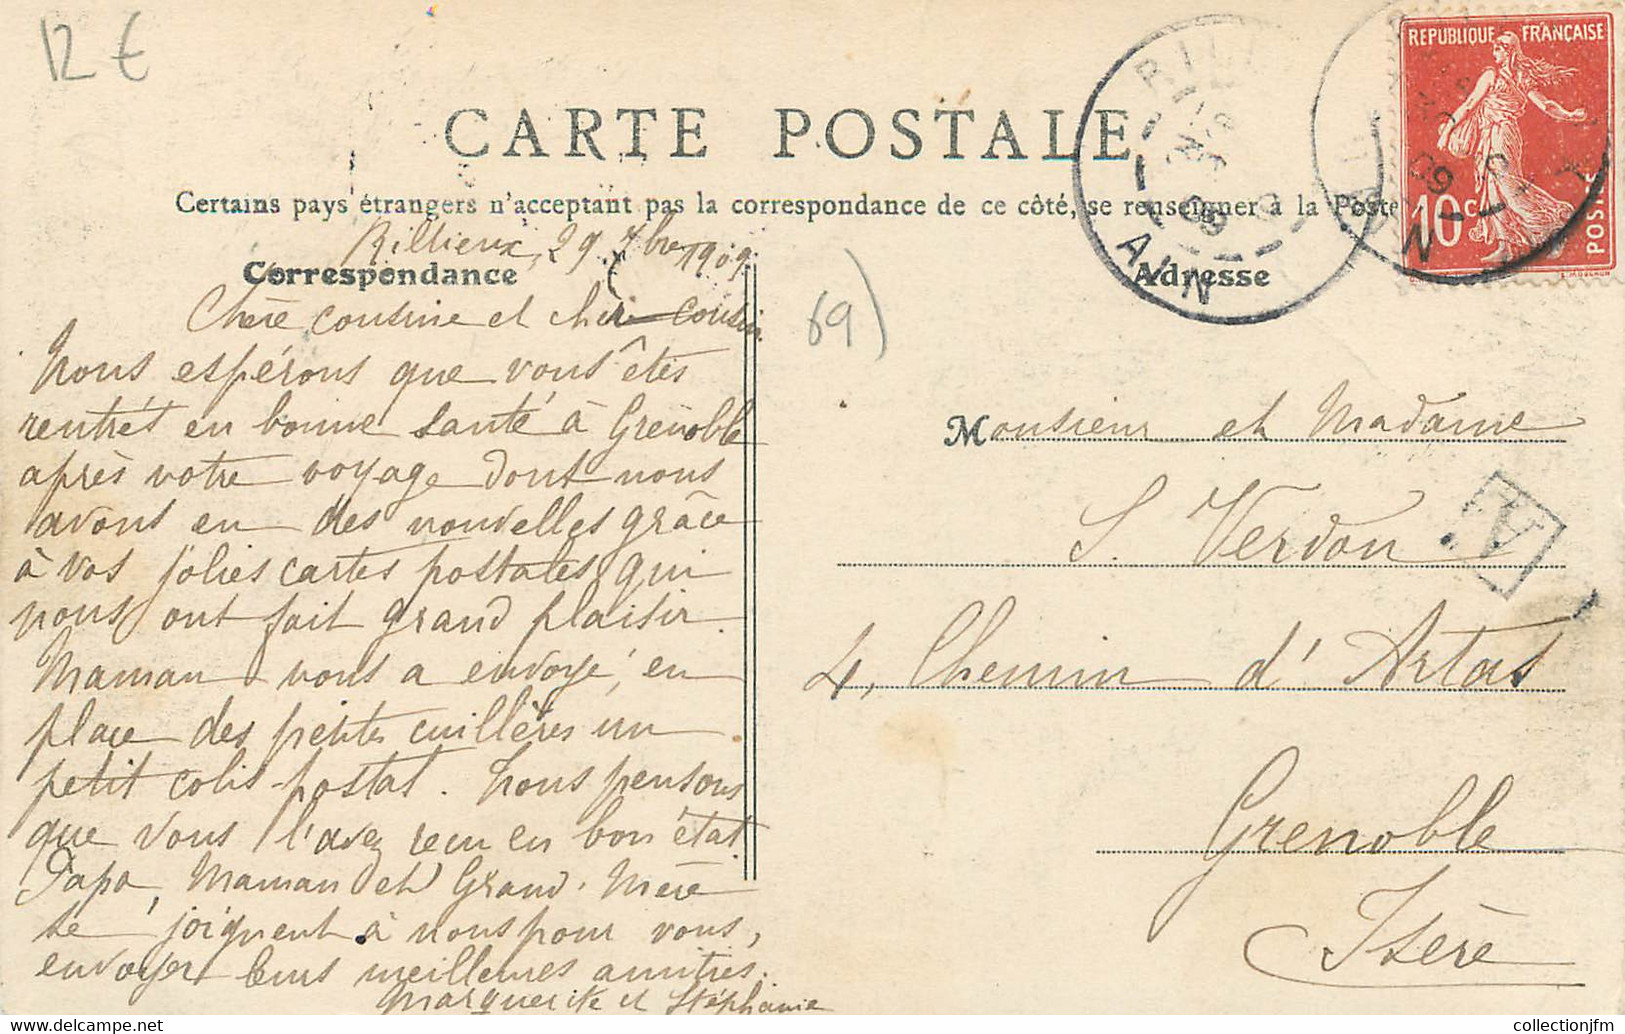 12 €
CARTE POSTALE
Certains pays étrangers n'acceptent pas la correspondance de ce côté, se renseigner à la Poste
Rillieux, 29 7bre 1909
Correspondance
Adresse
RÉPUBLIQUE FRANÇAISE
10 c
POSTES
AIN
09
Chère cousine et cher cousin
Nous espérons que vous êtes
rentrés en bonne santé à Grenoble
après votre voyage dont nous
avons eu des nouvelles grâce
à vos jolies cartes postales qui
nous ont fait grand plaisir.
Maman vous a envoyé, en
place des petites cuillères un
petit colis-postal. Nous pensons
que vous l'avez reçu en bon état
Papa, Maman et Grand-Mère
se joignent à nous pour vous,
envoyer leurs meilleures amitiés.
Marguerite et Stéphanie
69)
Monsieur et Madame
S. Verdon
4, Chemin d'Artas
Grenoble
Isère
collectionjfm